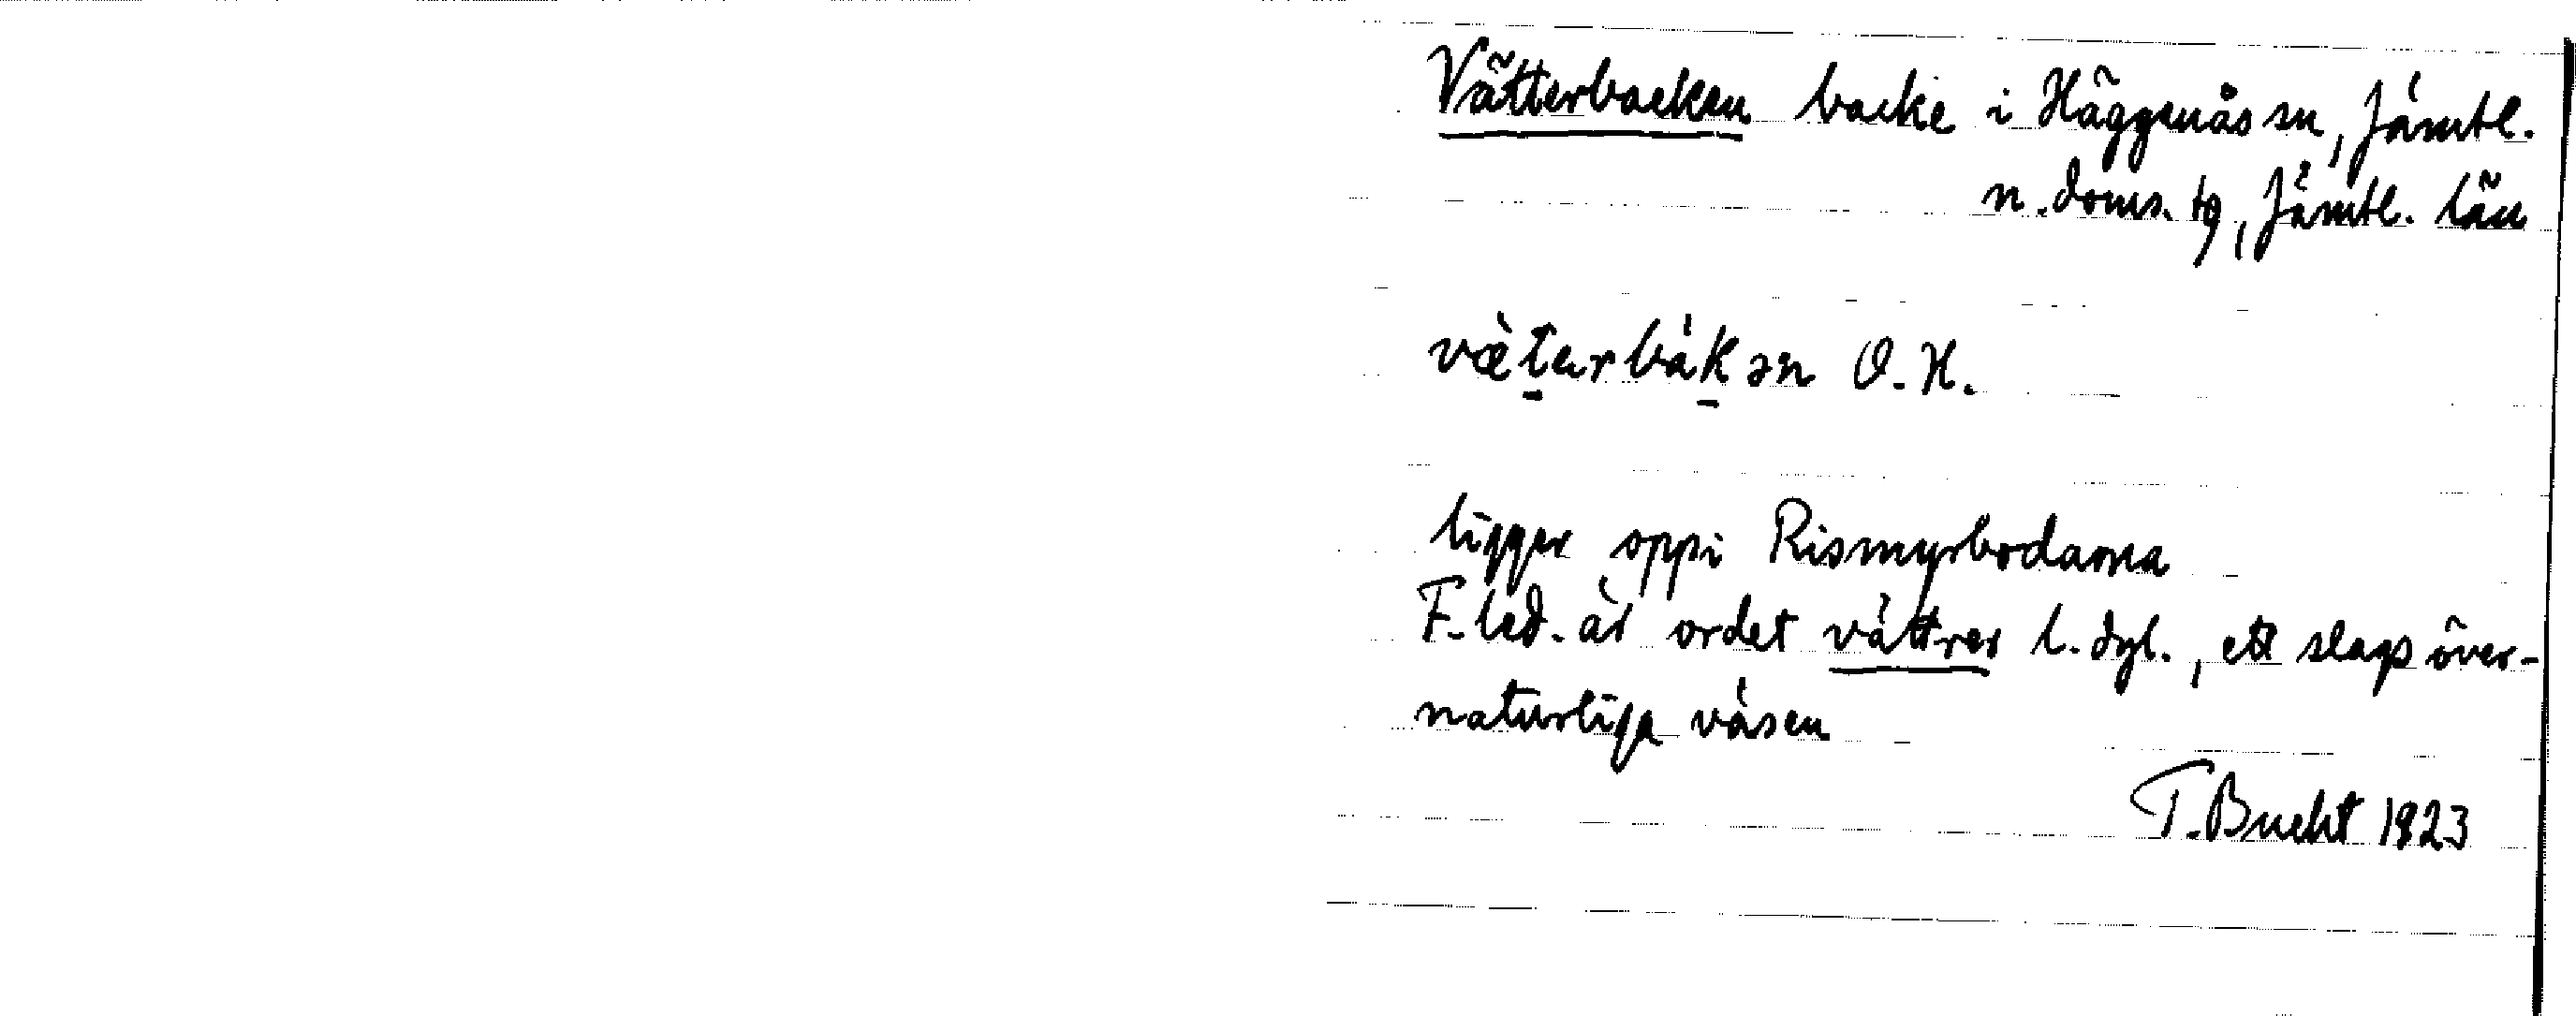 Vätterbacken backe i Häggenås sn, Jämtl.
n. doms. tg, Jämtl. län
væ̀t̠ərbák̠ən O. H.
ligger oppi Rismyrbodarna
F. led. är ordet vättrer l. dyl., ett slags över-
naturliga väsen
T. Bucht 1923